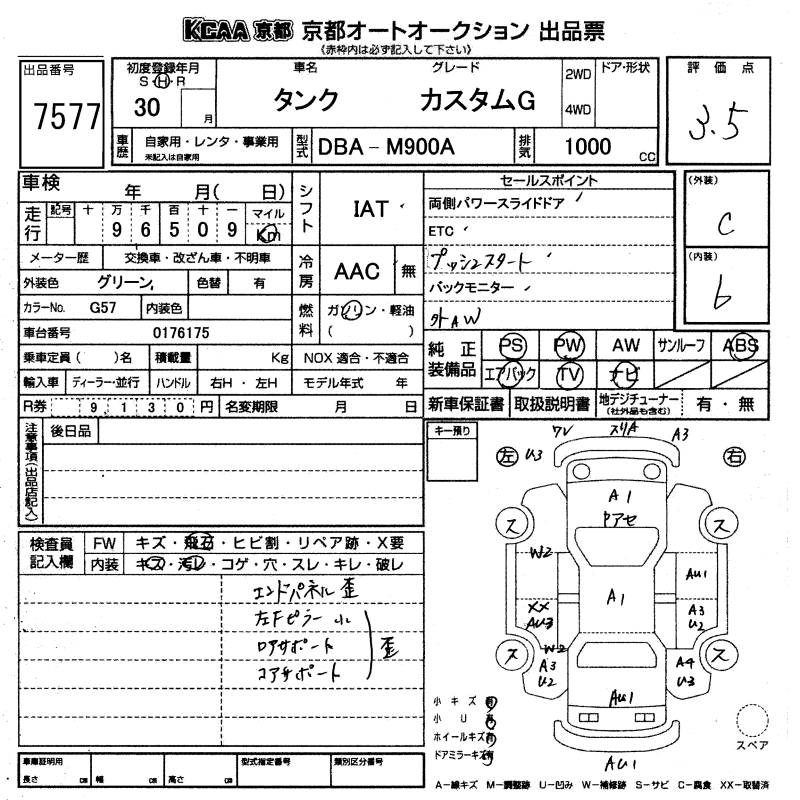 KCAA 京都 京都オートオークション 出品票
《赤枠内は必ず記入して下さい》
出品番号
7577
初度登録年月
S・H・R
30 月
車名
タンク
グレード
カスタムG
2WD
4WD
ドア・形状
評価点
3.5
車歴
自家用・レンタ・事業用
未記入は自家用
型式
DBA－M900A
排気
1000 cc
車検 年 月( 日)
走行
記号 十 万 千 百 十 一
9 6 5 0 9
マイル
Km
シフト
IAT
メーター歴 交換車・改ざん車・不明車
外装色 グリーン 色替 有
冷房
AAC 無
カラーNo. G57 内装色
燃料
ガソリン・軽油
( )
車台番号 0176175
乗車定員( )名 積載量 Kg NOX 適合・不適合
輸入車 ディーラー・並行 ハンドル 右H・左H モデル年式 年
R券 9,130円 名変期限 月 日
セールスポイント
両側パワースライドドア
ETC
プッシュスタート
バックモニター
外AW
(外装)
C
(内装)
b
純正装備品
PS PW AW サンルーフ ABS
エアバック TV ナビ
新車保証書 取扱説明書 地デジチューナー
(社外品も含む)
有・無
注意事項(出品店記入)
後日品
キー預り
検査員記入欄
FW キズ・飛石・ヒビ割・リペア跡・X要
内装 キズ・汚レ・コゲ・穴・スレ・キレ・破レ
エンドパネル 歪
左Fピラー 小
ロアサポート
コアサポート
歪
左
右
ワレ スリA A3
U3
A1
トアセ
ス ス
W2
AU1
A1
XX
AU3
A3
U2
W2
ス ス
A3
U2
A4
U3
AU1
AU1
小キズ 有
小U 有
ホイールキズ 有
ドアミラーキズ 有
スペア
車庫証明用
長さ cm 幅 cm 高さ cm
型式指定番号
類別区分番号
A－線キズ M－調整跡 U－凹み W－補修跡 S－サビ C－腐食 XX－取替済